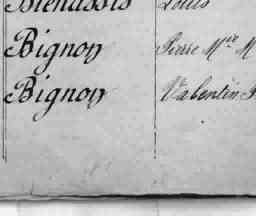 Bienassis Louis
Bignon Pierre M^ie M
Bignon Valentin